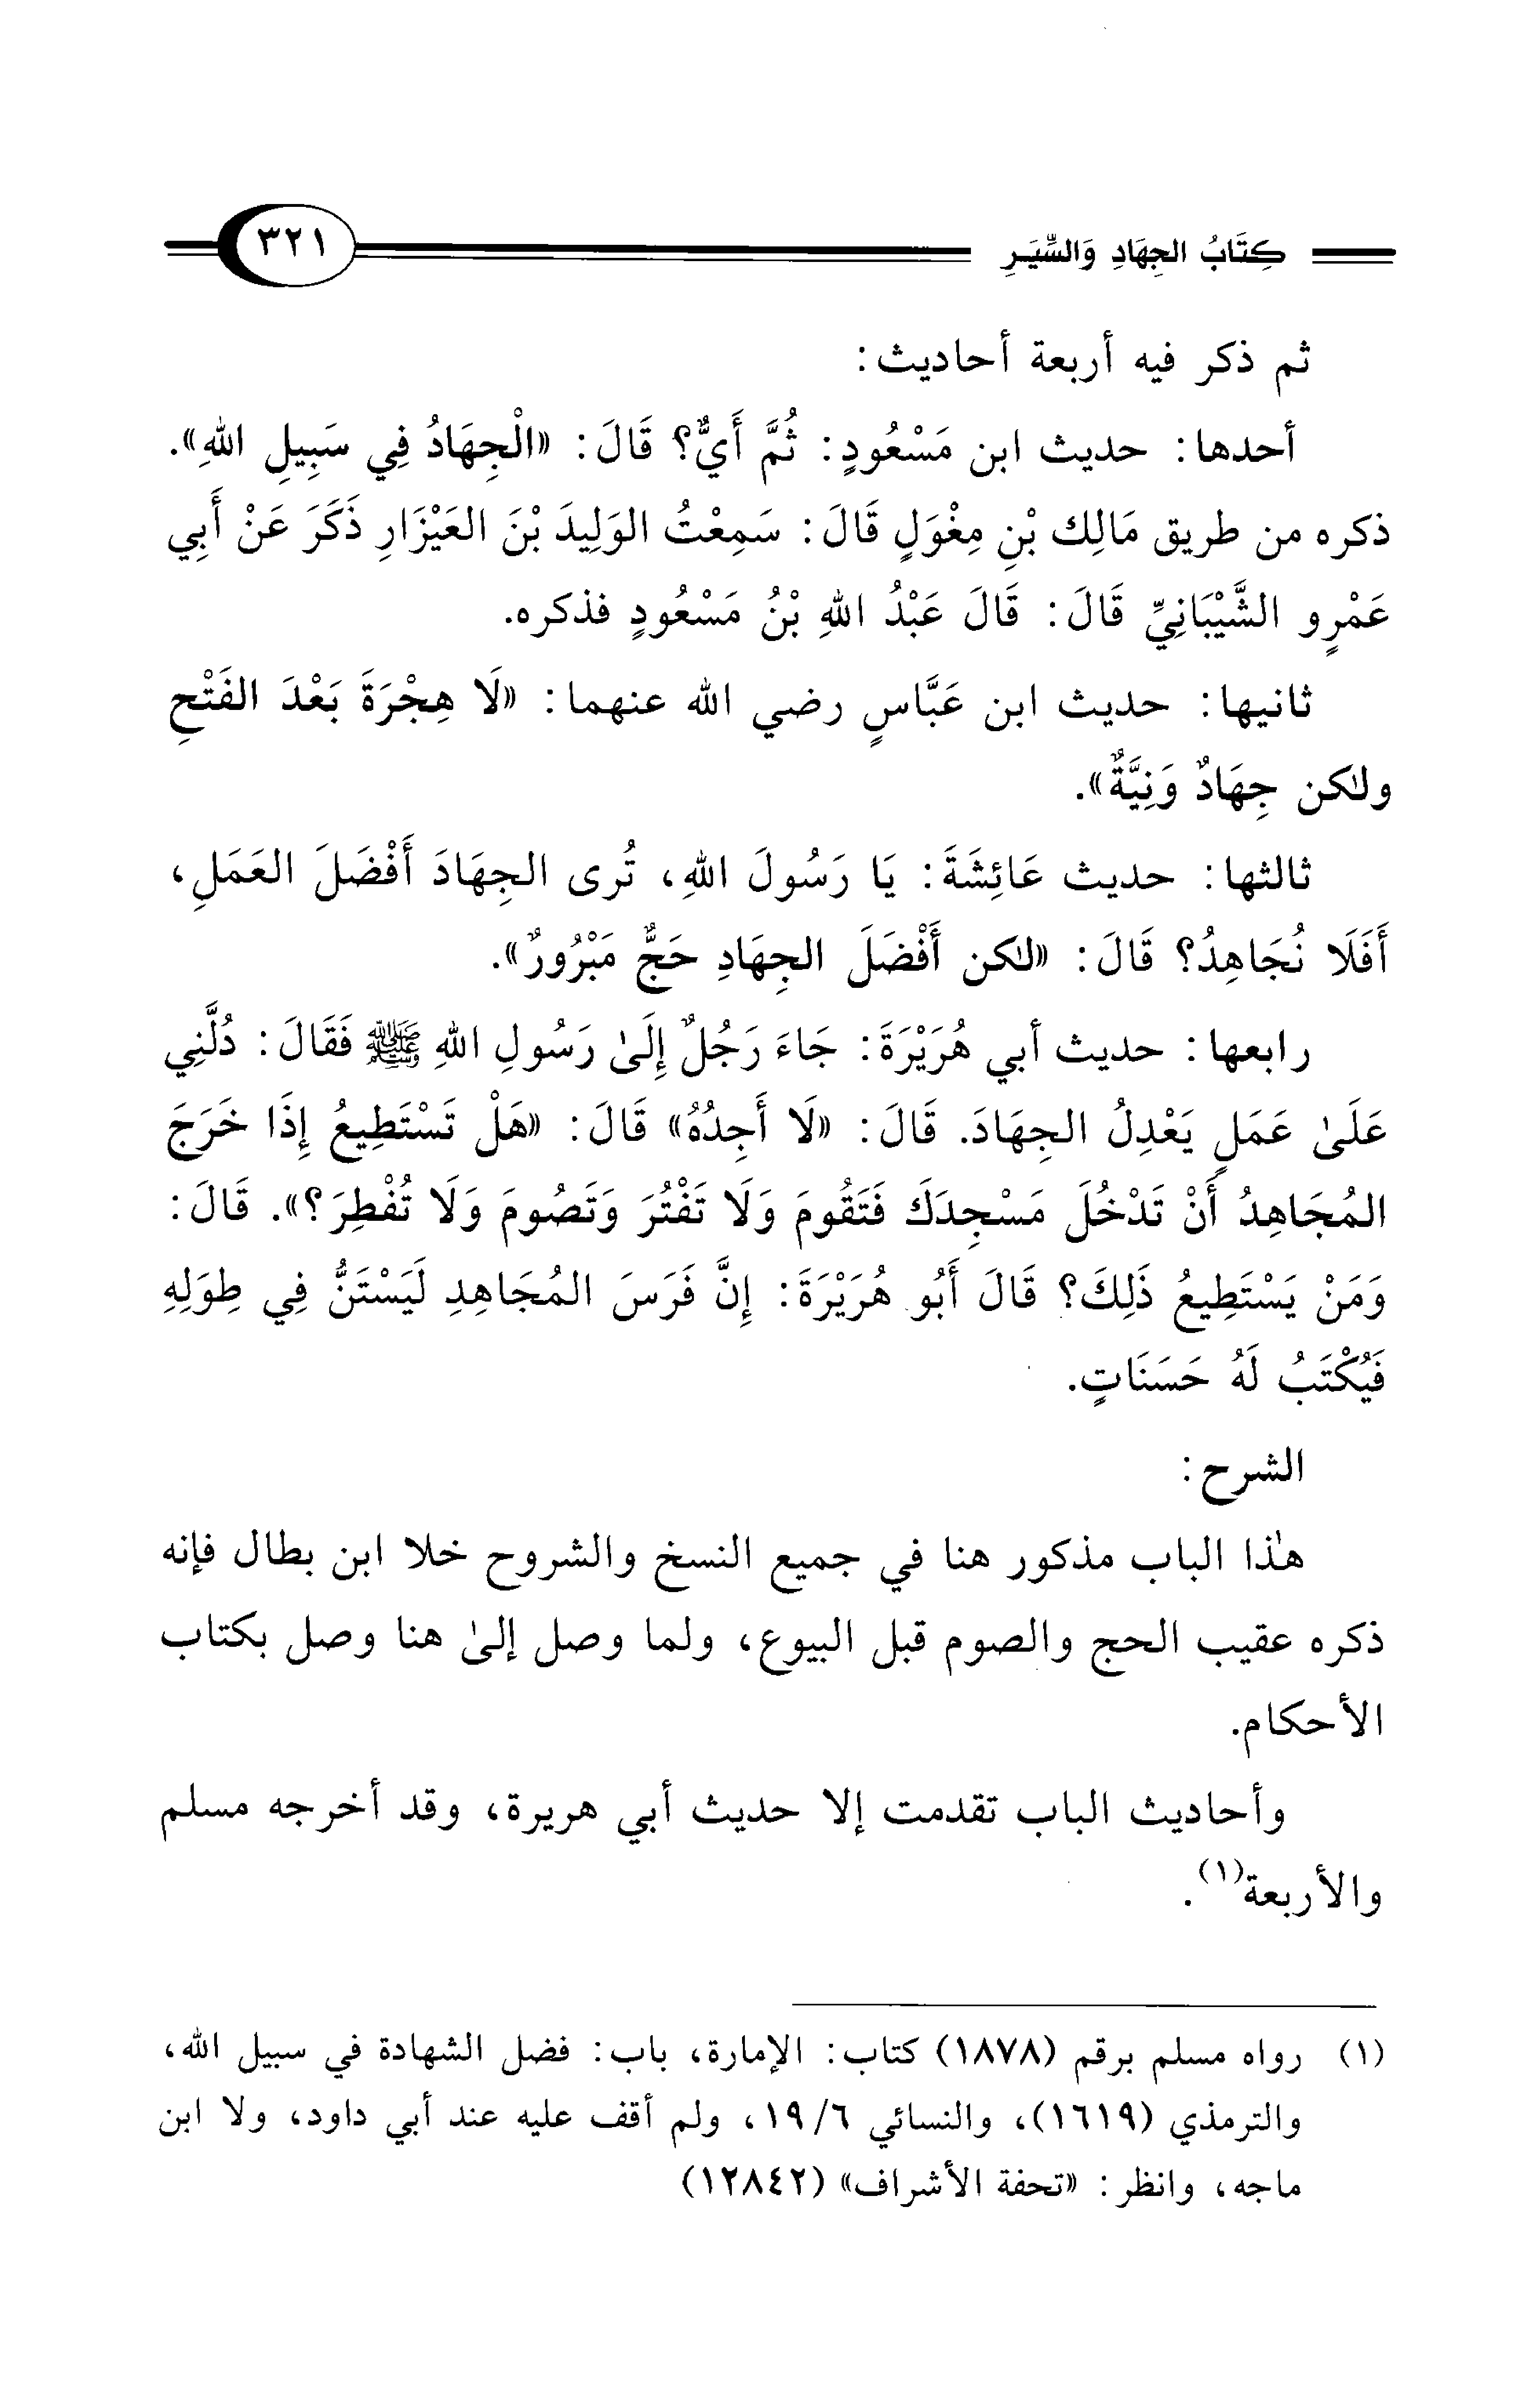 كِتَابُ الجِهَادِ وَالسِّيَرِ ٣٢١
ثم ذكر فيه أربعة أحاديث:
أحدها: حديث ابن مَسْعُودٍ: ثُمَّ أَيٌّ؟ قَالَ: «الْجِهَادُ فِي سَبِيلِ اللهِ».
ذكره من طريق مَالِك بْنِ مِغْوَلٍ قَالَ: سَمِعْتُ الوَلِيدَ بْنَ العَيْزَارِ ذَكَرَ عَنْ أَبِي
عَمْرٍو الشَّيْبَانِيِّ قَالَ: قَالَ عَبْدُ اللهِ بْنُ مَسْعُودٍ فذكره.
ثانيها: حديث ابن عَبَّاسٍ رضي الله عنهما: «لَا هِجْرَةَ بَعْدَ الفَتْحِ
ولكن جِهَادٌ وَنِيَّةٌ».
ثالثها: حديث عَائِشَةَ: يَا رَسُولَ اللهِ، تُرى الجِهَادَ أَفْضَلَ العَمَلِ،
أَفَلَا نُجَاهِدُ؟ قَالَ: «لكن أَفْضَلَ الجِهَادِ حَجٌّ مَبْرُورٌ».
رابعها: حديث أبي هُرَيْرَةَ: جَاءَ رَجُلٌ إِلَىٰ رَسُولِ اللهِ ﷺ فَقَالَ: دُلَّنِي
عَلَىٰ عَمَلٍ يَعْدِلُ الجِهَادَ. قَالَ: «لَا أَجِدُهُ» قَالَ: «هَلْ تَسْتَطِيعُ إِذَا خَرَجَ
المُجَاهِدُ أَنْ تَدْخُلَ مَسْجِدَكَ فَتَقُومَ وَلَا تَفْتُرَ وَتَصُومَ وَلَا تُفْطِرَ؟». قَالَ:
وَمَنْ يَسْتَطِيعُ ذَلِكَ؟ قَالَ أَبُو هُرَيْرَةَ: إِنَّ فَرَسَ المُجَاهِدِ لَيَسْتَنُّ فِي طِوَلِهِ
فَيُكْتَبُ لَهُ حَسَنَاتٍ.
الشرح:
هٰذا الباب مذكور هنا في جميع النسخ والشروح خلا ابن بطال فإنه
ذكره عقيب الحج والصوم قبل البيوع، ولما وصل إلىٰ هنا وصل بكتاب
الأحكام.
وأحاديث الباب تقدمت إلا حديث أبي هريرة، وقد أخرجه مسلم
والأربعة(١).
(١) رواه مسلم برقم (١٨٧٨) كتاب: الإمارة، باب: فضل الشهادة في سبيل الله،
والترمذي (١٦١٩)، والنسائي ٦/ ١٩، ولم أقف عليه عند أبي داود، ولا ابن
ماجه، وانظر: «تحفة الأشراف» (١٢٨٤٢)